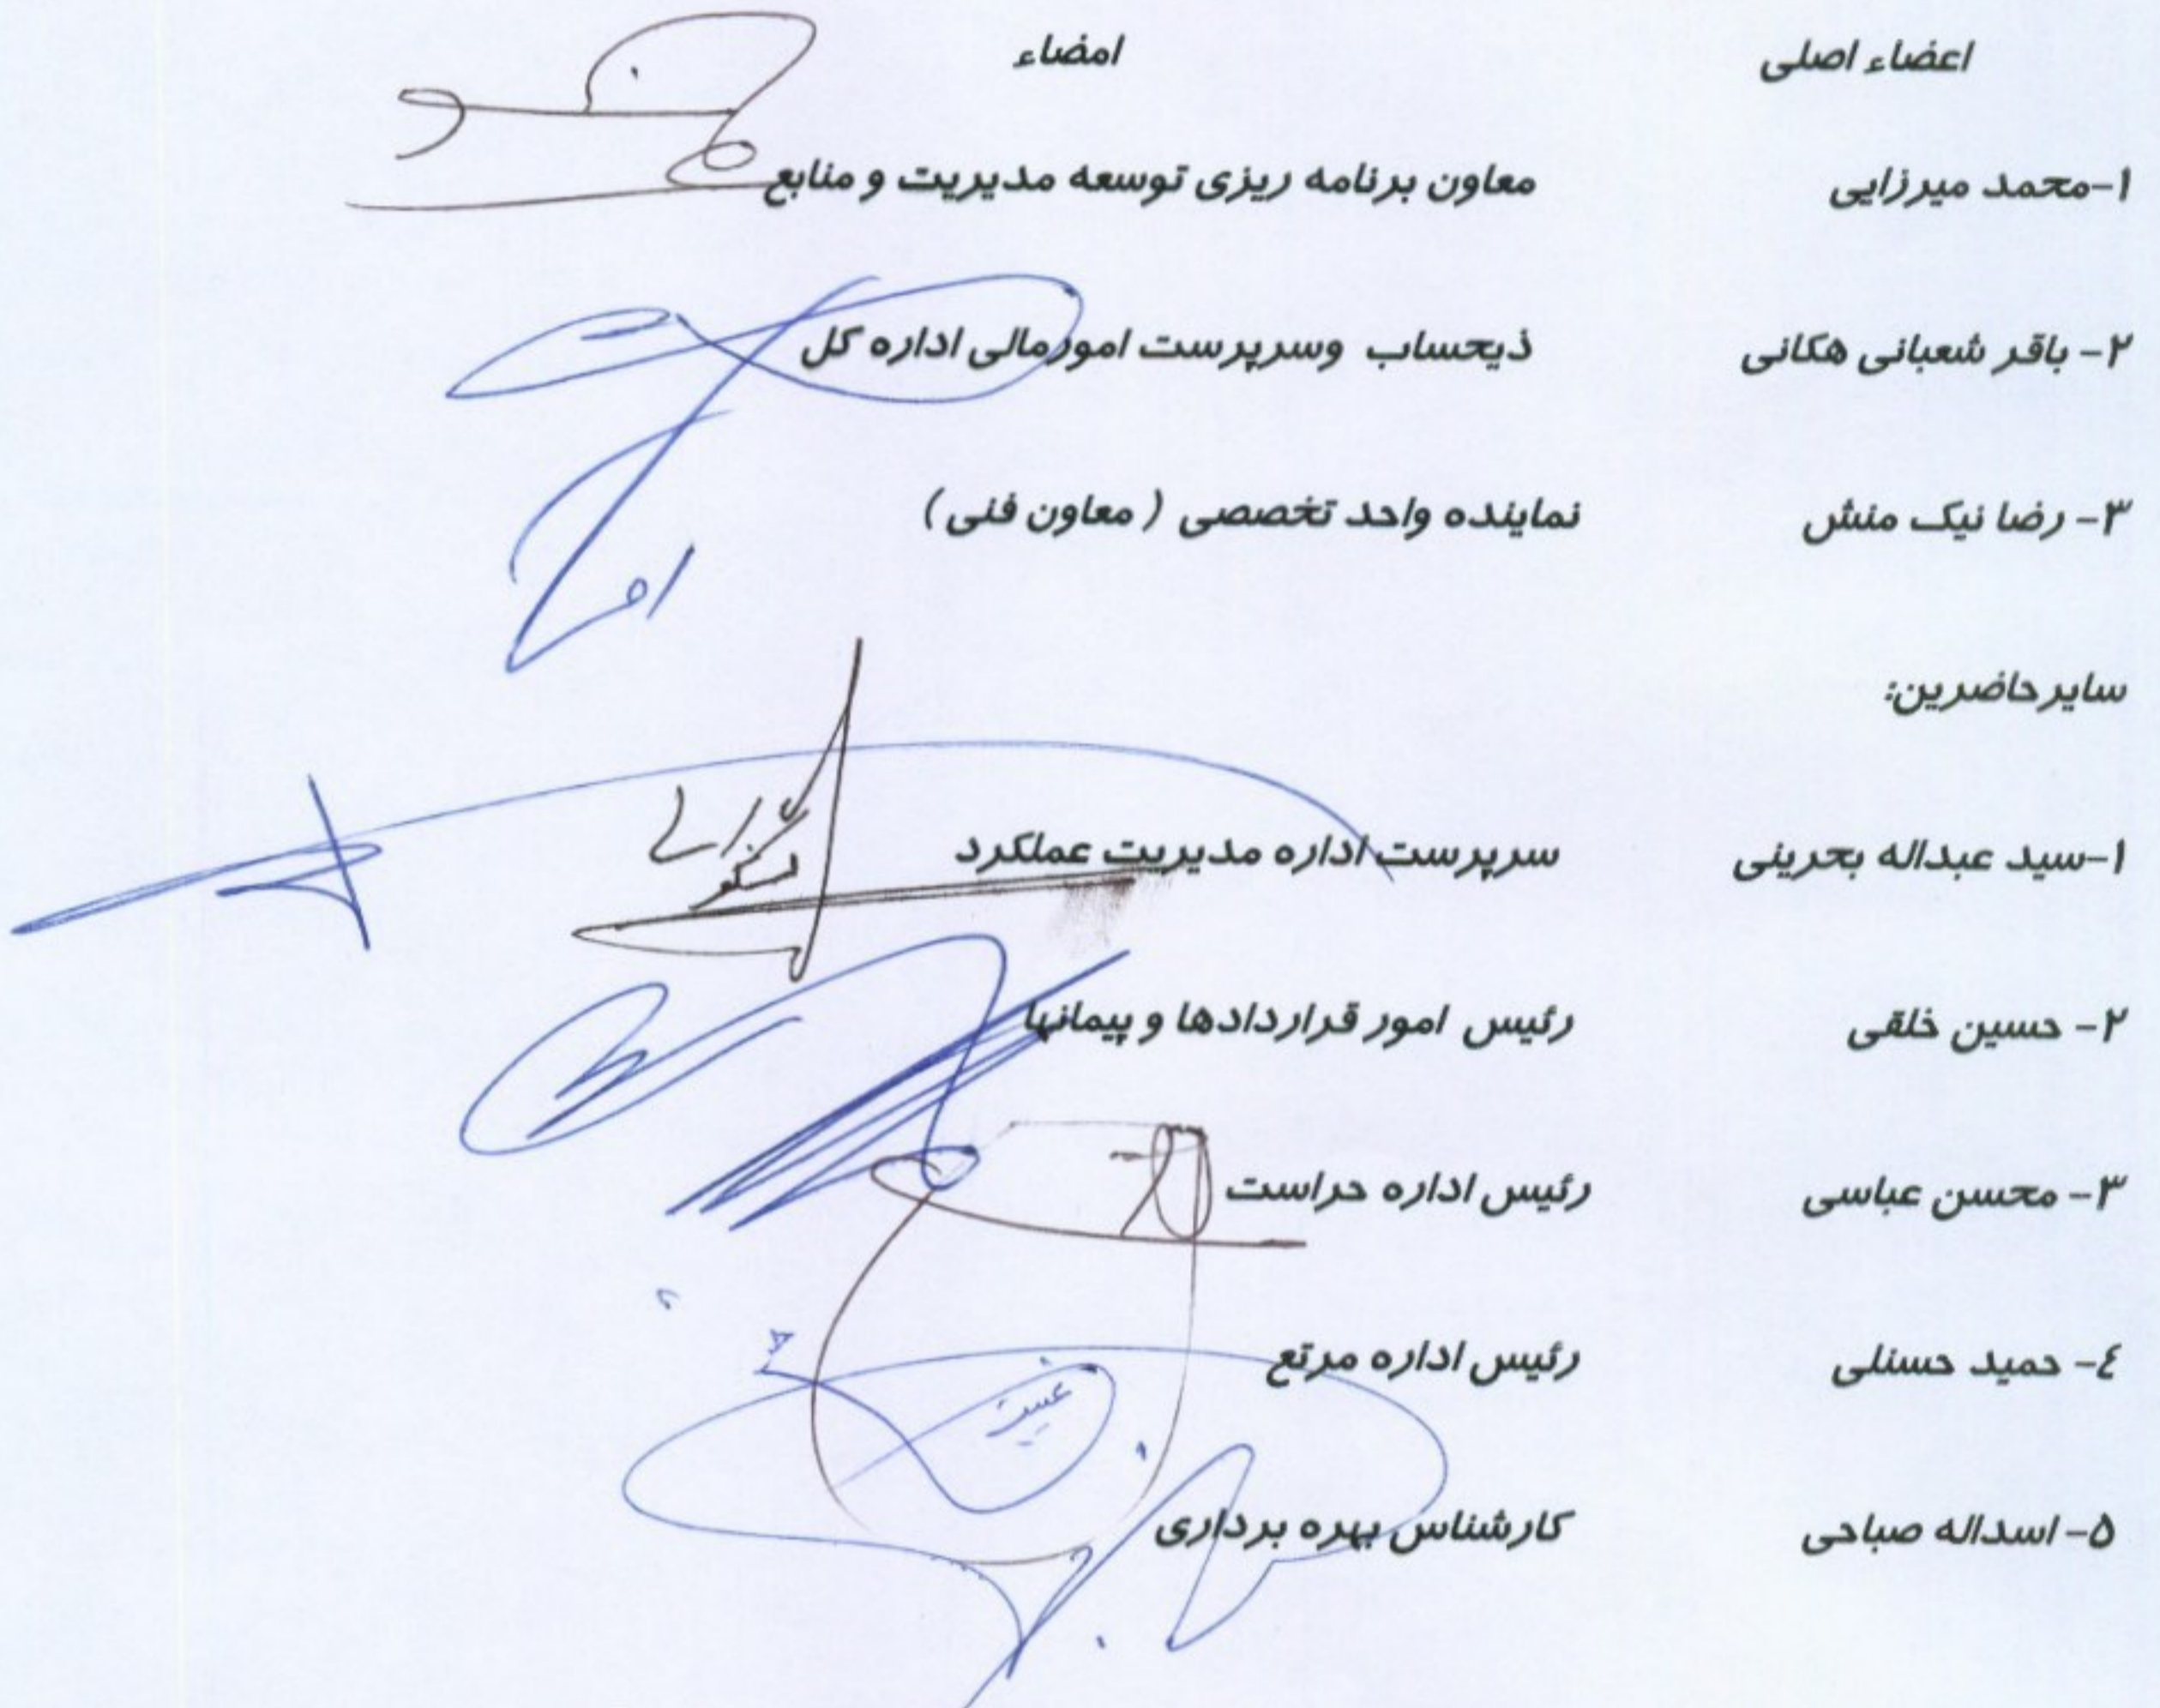 اعضاء اصلی امضاء
۱-محمد میرزایی معاون برنامه ریزی توسعه مدیریت و منابع
۲- باقر شعبانی هکانی ذیحساب وسرپرست امورمالی اداره کل
۳- رضا نیک منش نماینده واحد تخصصی ( معاون فنی )
سایر حاضرین:
۱-سید عبداله بحرینی سرپرست اداره مدیریت عملکرد
۲- حسین خلقی رئیس امور قراردادها و پیمانها
۳- محسن عباسی رئیس اداره حراست
٤- حمید حسنلی رئیس اداره مرتع
۵- اسداله صباحی کارشناس بهره برداری